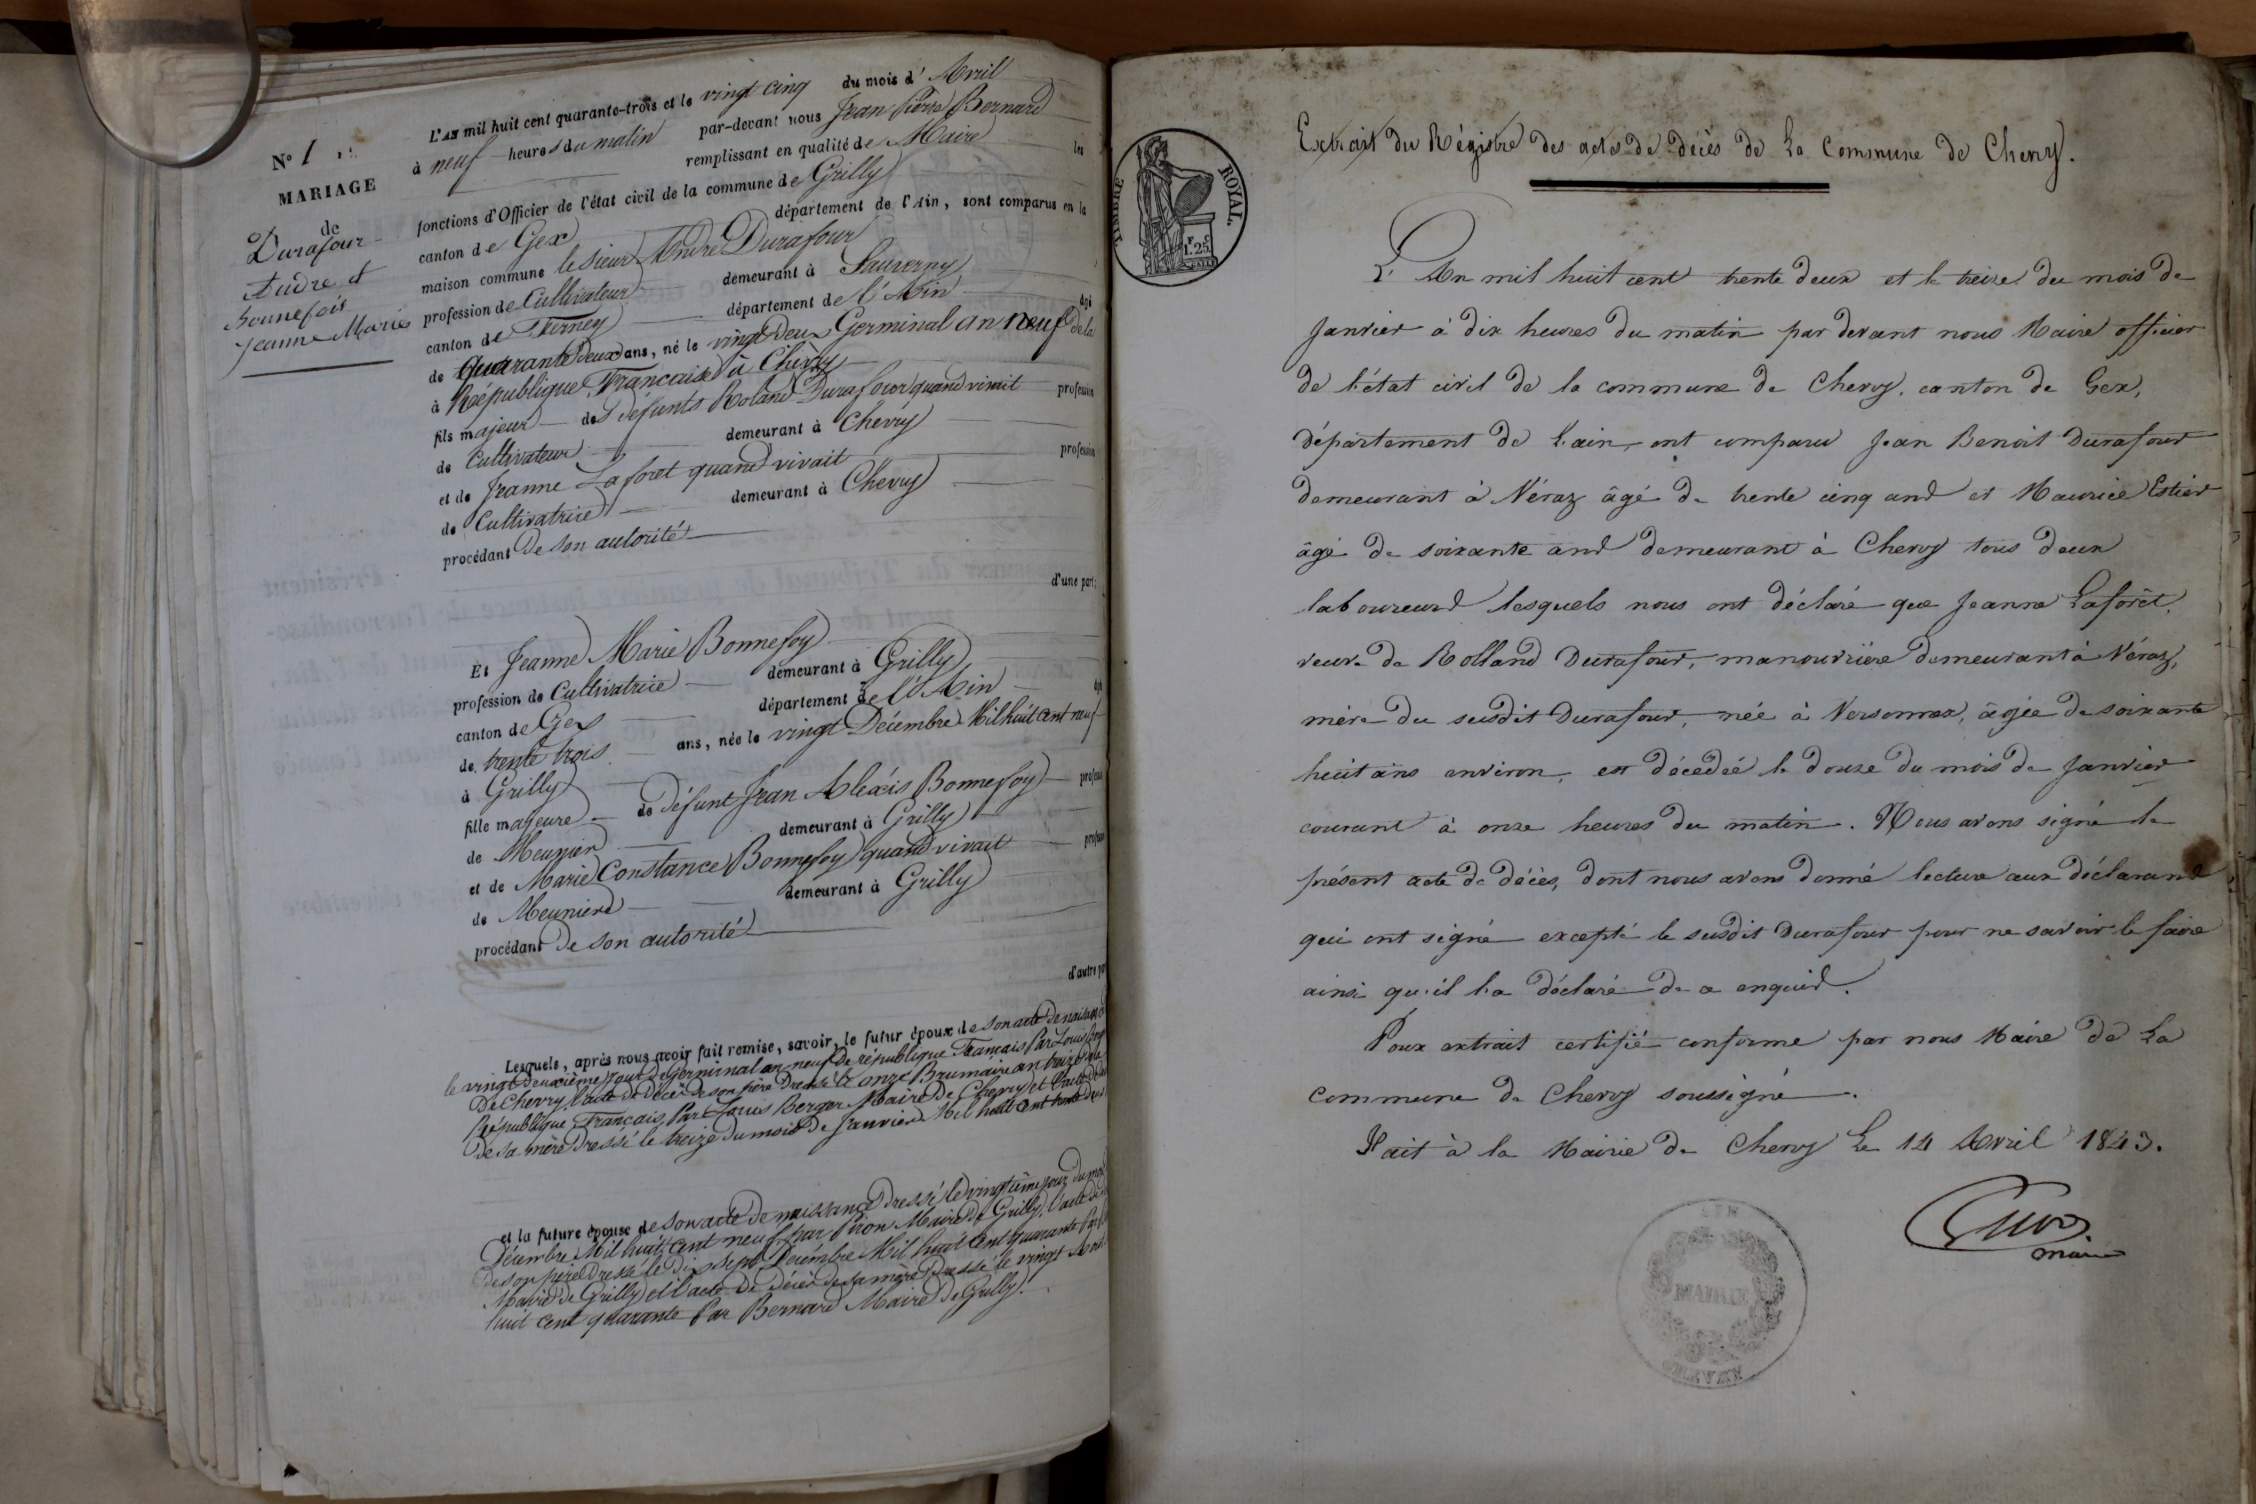 N° 1
MARIAGE
de
Durafour
Andre et
Bonnefois
Jeanne Marie
L'AN mil huit cent quarante-trois et le vingt cinq du mois d' Avril
à neuf heures du matin par-devant nous Jean Pierre Bernard
remplissant en qualité de Maire les
fonctions d'Officier de l'état civil de la commune de Grilly
canton de Gex département de l'Ain, sont comparus en la
maison commune le sieur Andre Durafour
profession de Cultivateur demeurant à Sauverny
canton de Ferney département de l'Ain âgé
de quarante deux ans, né le vingt deux Germinal an neuf de la
à République Française à Chévry
fils majeur de Défunts Roland Durafour quand vivait profession
de Cultivateur demeurant à Chévry
et de Jeanne Laforet quand vivait profession
de Cultivatrice demeurant à Chevry
procédant de son autorité
d'une part;
Et Jeanne Marie Bonnefoy
profession de Cultivatrice demeurant à Grilly
canton de Gex département de l'Ain
de trente trois ans, née le vingt Décembre Mil huit cent neuf
à Grilly
fille majeure de défunt Jean Aléxis Bonnefoy
de Meunier demeurant à Grilly
et de Marie Constance Bonnefoy quand vivait
de Meuniere demeurant à Grilly
procédant de son autorité
d'autre
Lesquels, après nous avoir fait remise, savoir, le futur époux de son acte de naissance
le vingt deuxième jour de Germinal an neuf de république Français Par Louis
De Chevry, l'acte de décès de son père Dressé le onze Brumaire an treize de
République Français Par Louis Berger Maire De Chevry et l'acte de
de sa mère Dressé le treize du mois de Janvier Mil huit cent trente deux
et la future épouse de son acte de naissance Dressé le vingtième jour du mois
Décembre Mil huit cent neuf par Maire de Grilly, l'acte de
de son père Dressé le Dix sept Décembre Mil huit cent quarante Par
Maire de Grilly et l'acte de Décès de sa mère Dressé le vingt
huit cent quarante Par Bernard Maire de Grilly.
TIMBRE ROYAL
1F. 25c
Extrait du Régistre des actes de décès de La Commune de Chevry.
L'An mil huit cent trente deux et le treize du mois de
Janvier à dix heures du matin par devant nous Maire officier
de l'état civil de la commune de Chevry, canton de Gex,
département de L'ain, ont comparu Jean Benoit Durafour
demeurant à Véraz âgé de trente cinq ans et Maurice Estier
âgé de soixante ans demeurant à Chevry tous deux
laboureurs lesquels nous ont déclaré que Jeanne Laforêt,
veuve de Rolland Durafour, manouvrière demeurant à Véraz,
mère du susdit Durafour, née à Versonnex, âgée de soixante
huit ans environ, est décedée le douze du mois de Janvier
courant à onze heures du matin. Nous avons signé le
présent acte de décès, dont nous avons donné lecture aux déclarans
qui ont signé excepté le susdit Durafour pour ne savoir le faire
ainsi qu'il l'a déclaré de ce enquis.
Pour extrait certifié conforme par nous Maire de La
commune de Chevry soussigné.
Fait à la Mairie de Chevry Le 14 Avril 1843.
maire
AIN
MAIRIE